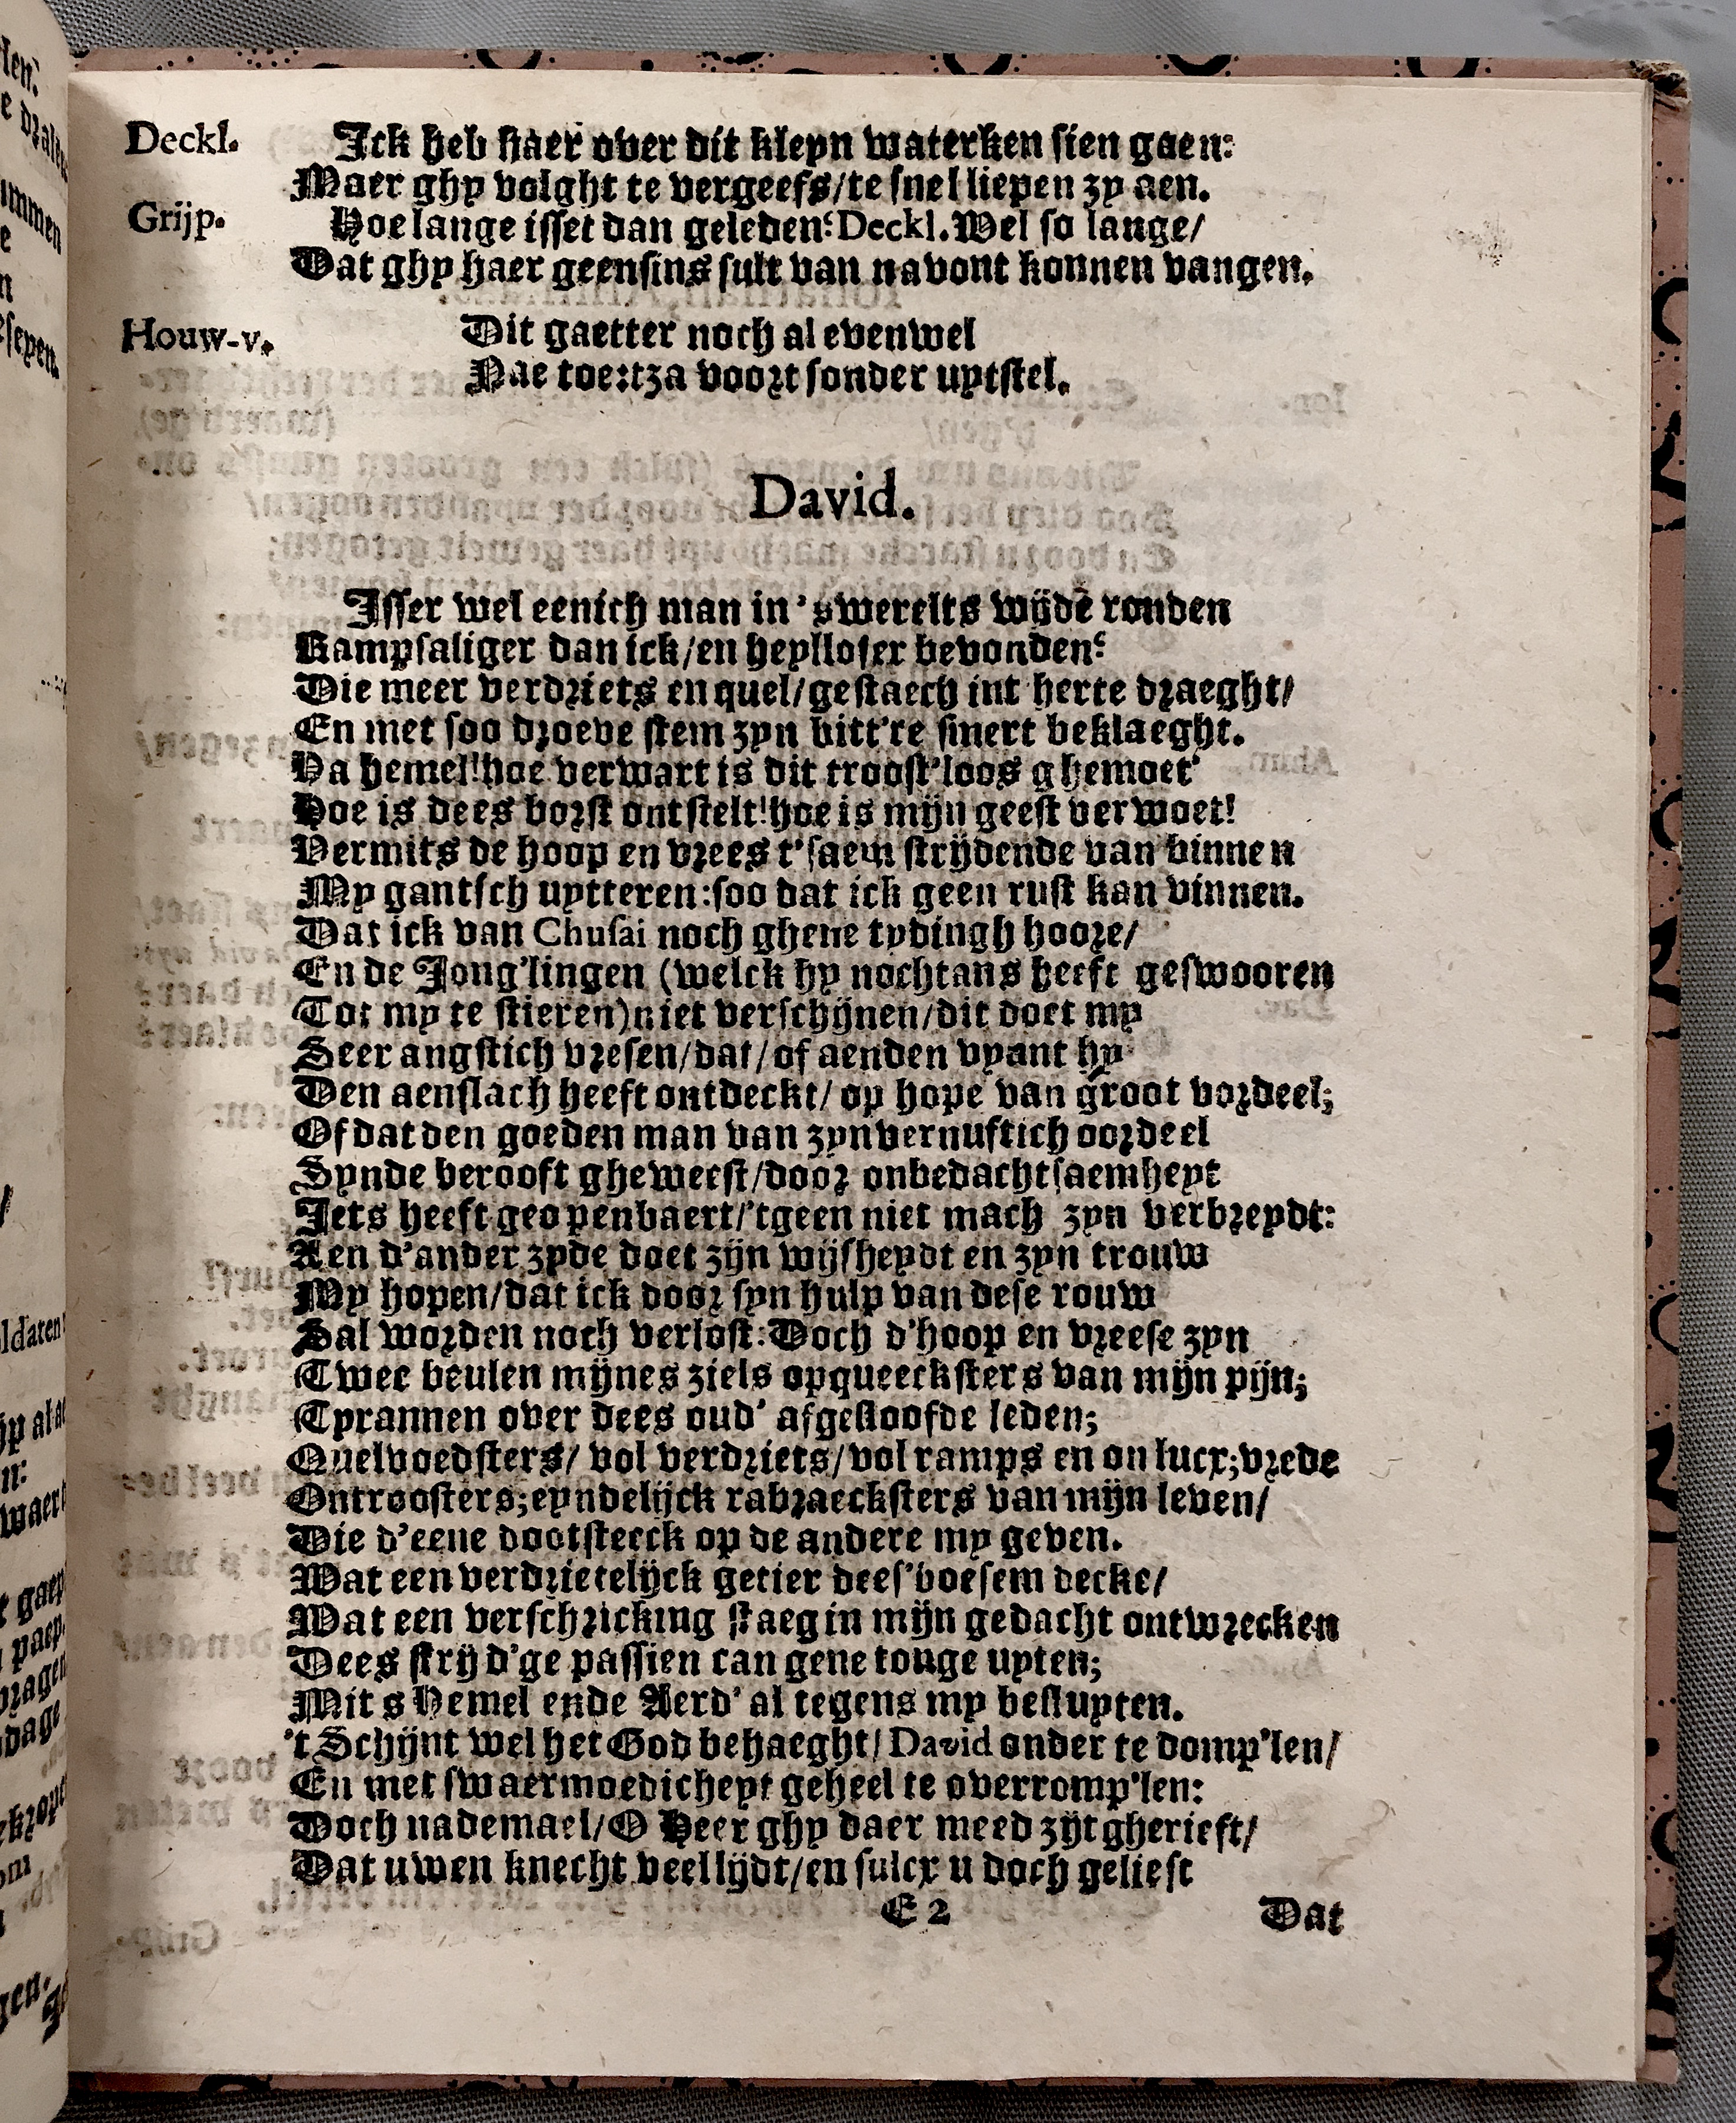 Deckl. Ick heb haer over dit kleyn waterken sien gaen:
Maer ghy volght te vergeefs/te snel liepen zy aen.
Grijp. Hoe lange isset dan geleden? Deckl. Wel so lange/
Dat ghy haer geensins sult van navont konnen vangen.
Houw-v. Dit gaetter noch al evenwel
Nae toe:tza voort sonder uytstel.
David.
Isser wel eenich man in 's werelts wijdē ronden
Rampsaliger dan ick/en heylloser bevonden?
Die meer verdriets en quel/gestaech int herte draeght/
En met soo droeve stem zyn bitt're smert beklaeght.
Ha hemel!hoe verwart is dit troost'loos ghemoet'
Hoe is dees borst ontstelt!hoe is mijn geest verwoet!
Vermits de hoop en vrees t'saem strijdende van binnen
My gantsch uytteren:soo dat ick geen rust kan vinnen.
Dat ick van Chusai noch ghene tydingh hoore/
En de Jong'lingen (welck hy nochtans heeft geswooren
Tot my te stieren)niet verschijnen/dit doet my
Seer angstich vresen/dat/of aenden vyant hy
Den aenslach heeft ontdeckt/ op hope van groot vordeel;
Of dat den goeden man van zyn vernuftich oordeel
Synde berooft gheweest/door onbedachtsaemheyt
Iets heeft geopenbaert/'tgeen niet mach zyn verbreydt:
Aen d'ander zyde doet zijn wijsheydt en zyn trouw
My hopen/dat ick door syn hulp van dese rouw
Sal worden noch verlost:Doch d'hoop en vreese zyn
Twee beulen mijnes ziels opqueecksters van mijn pijn;
Tyrannen over dees oud' afgesloofde leden;
Quelvoedsters/ vol verdriets/vol ramps en on lucx;vrede
Ontroosters;eyndelijck rabraecksters van mijn leven/
Die d'eene dootsteeck op de andere my geven.
Wat een verdrietelijck getier dees'boesem decke/
Wat een verschricking staeg in mijn gedacht ontwrecken
Dees strijd'ge passien can gene tonge uyten;
Mits Hemel ende Aerd' al tegens my besluyten.
't Schijnt wel het God behaeght/David onder te domp'len/
En met swaermoedicheyt geheel te overromp'len:
Doch nademael/O Heer ghy daer meed zijt gherieft/
Dat uwen knecht veel lijdt/en sulcx u doch geliest
E 2 Dat